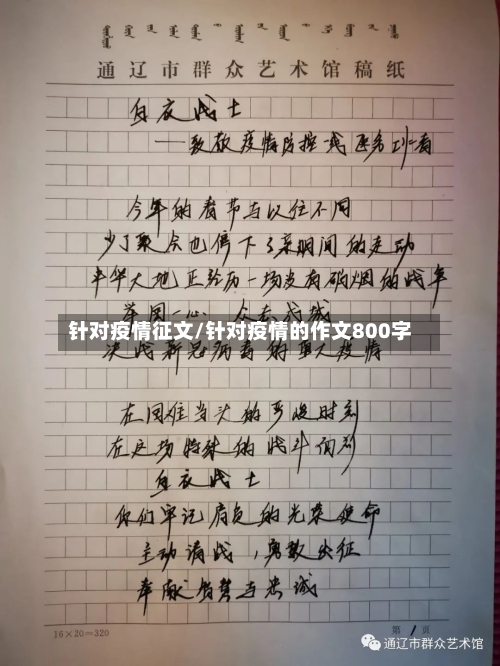 通辽市群众艺术馆稿纸
白衣战士
——致敬疫情防控一线医务工作者
今年的春节与以往不同
少了聚会也停下了亲朋间的走动
中华大地正经历一场没有硝烟的战争
举国一心 众志成城
针对疫情征文/针对疫情的作文800字
决战新冠病毒的重大疫情
在国难当头的严峻时刻
在这场特殊的战斗面前
白衣战士
你们牢记肩负的光荣使命
主动请战，勇敢出征
奉献智慧与忠诚
16×20=320
第 1 页
通辽市群众艺术馆